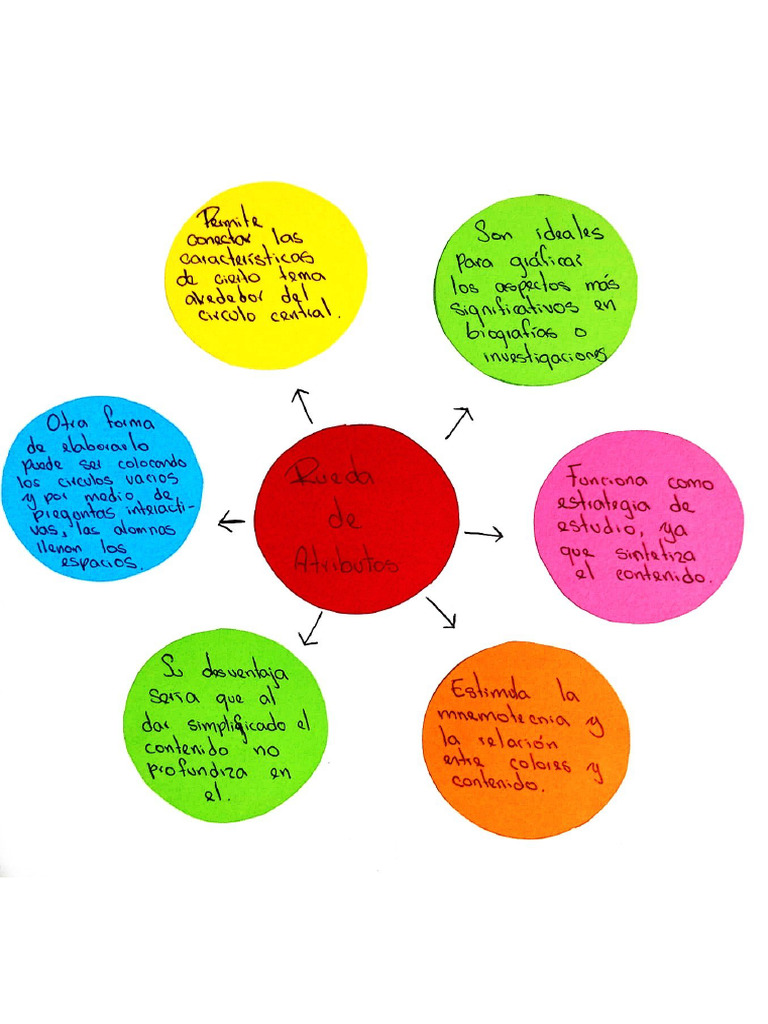 Permite
conectar las
características
de cierto tema
alrededor del
circulo central.
Son ideales
para gráficar
los aspectos más
significativos en
biografías o
investigaciones
Otra forma
de elaborarlo
puede ser colocando
los circulos varios
y por medio de
preguntas interacti-
vas, las alumnas
llenan los
espacios.
Rueda
de
Atributos
Funciona como
estrategia de
estudio, ya
que sintetiza
el contenido.
Su desventaja
seria que al
dar simplificado el
contenido no
profundiza en
el.
Estimula la
mnemotecnia y
la relación
entre colores y
contenido.